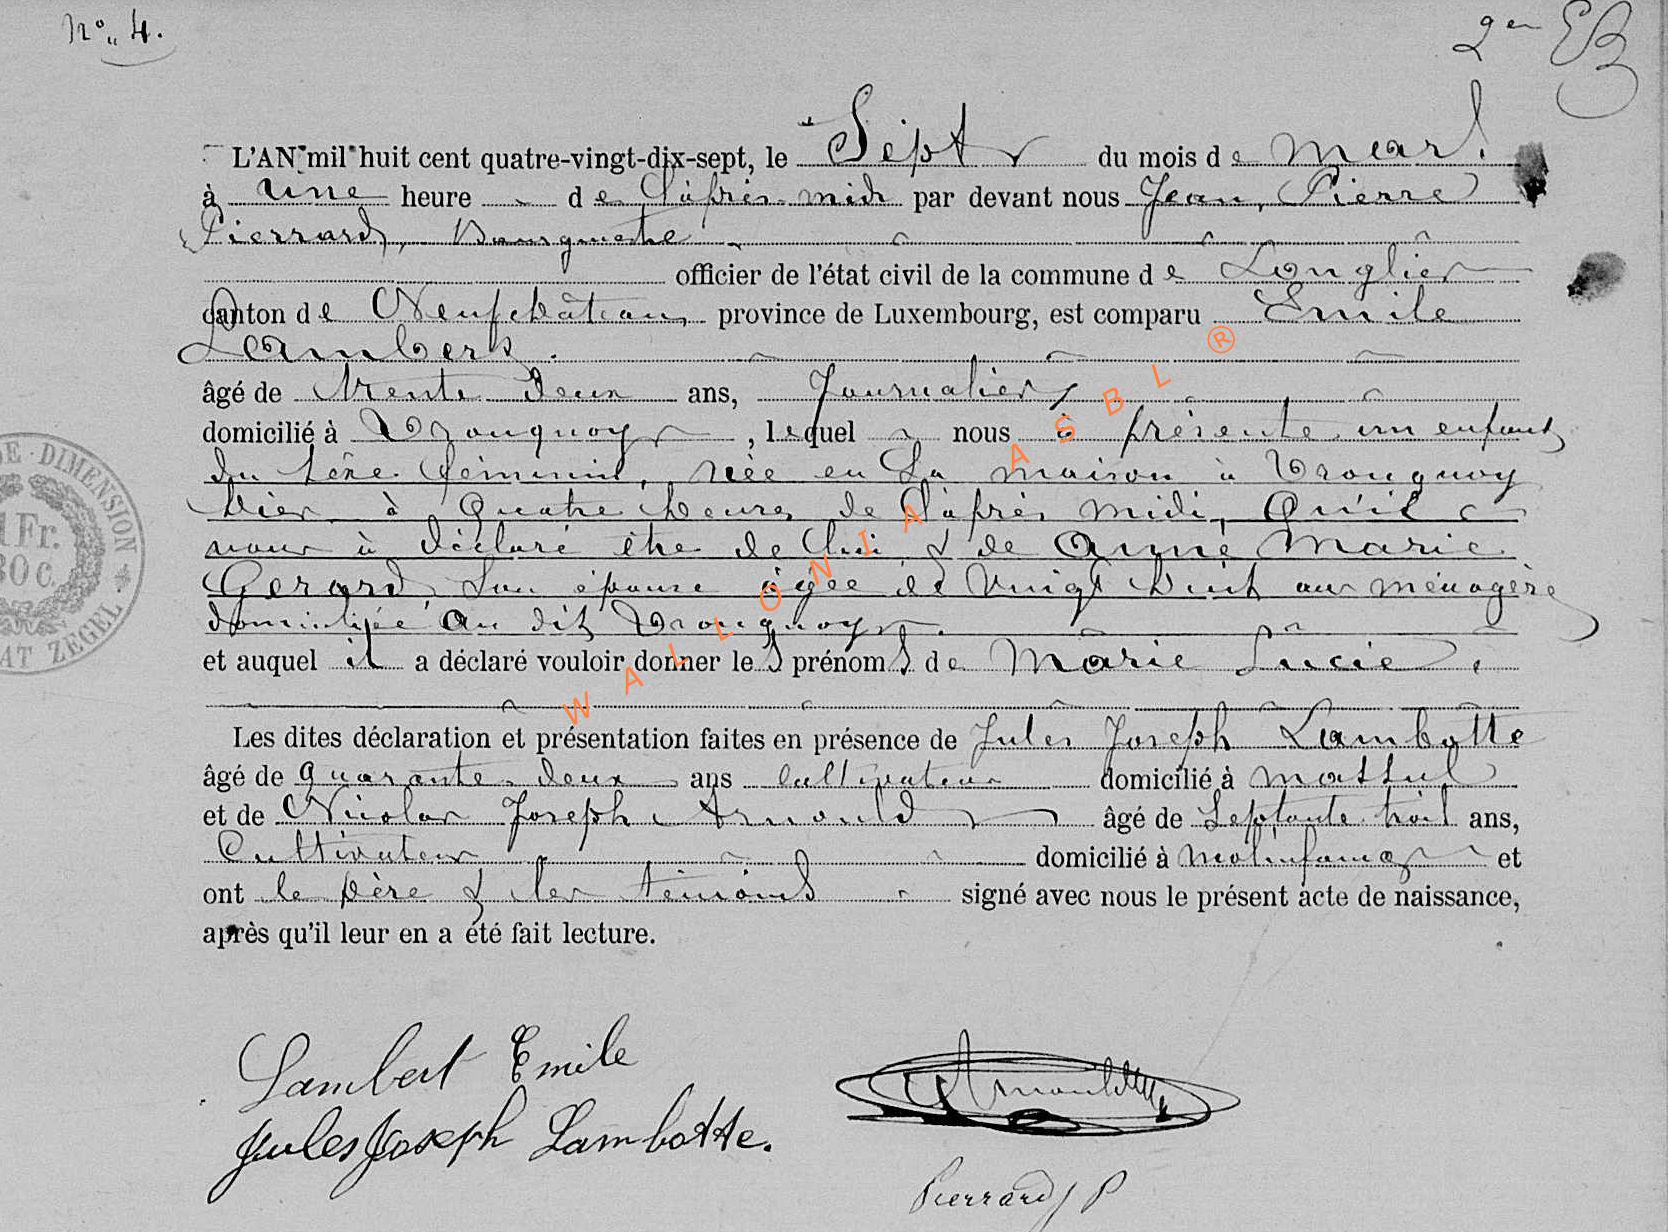 N° 4.
2en EB
L'AN mil huit cent quatre-vingt-dix-sept, le Sept du mois de mars
à une heure de l'après-midi par devant nous Jean, Pierre
Pierrard, Bourgmestre
officier de l'état civil de la commune de Longlier
canton de Neufchâteau, province de Luxembourg, est comparu Emile
Lambert.
âgé de trente deux ans, Journalier,
domicilié à Tronquoy, lequel nous à présenté un enfant
du sexe féminin, née en Sa maison à Tronquoy
hier à quatre heures de l'après midi, Qu'il
nous à déclaré être de lui & de Anne Marie
Gerard, Son épouse âgée de vingt huit ans ménagère
domiciliée au dit Tronquoy.
et auquel il a déclaré vouloir donner les prénoms de Marie Lucie.
Les dites déclaration et présentation faites en présence de Jules Joseph Lambotte
âgé de quarante-deux ans cultivateur domicilié à Massul
et de Nicolas Joseph Arnould âgé de Septante trois ans,
Cultivateur domicilié à Molinfaing et
ont le père & les témoins signé avec nous le présent acte de naissance,
après qu'il leur en a été fait lecture.
Lambert Emile
Jules Joseph Lambotte.
Arnould
Pierrard J P
DE DIMENSION
1 Fr.
30 c.
AT ZEGEL
WALLONIA ASBL ®